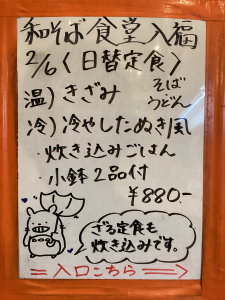 和そば食堂入福
2/6〈日替定食〉
温)きざみ そば
うどん
冷)冷やしたぬき風
・炊き込みごはん
・小鉢2品付
¥880.-
ざる定食も
炊き込みです。
=入口こちら⇒